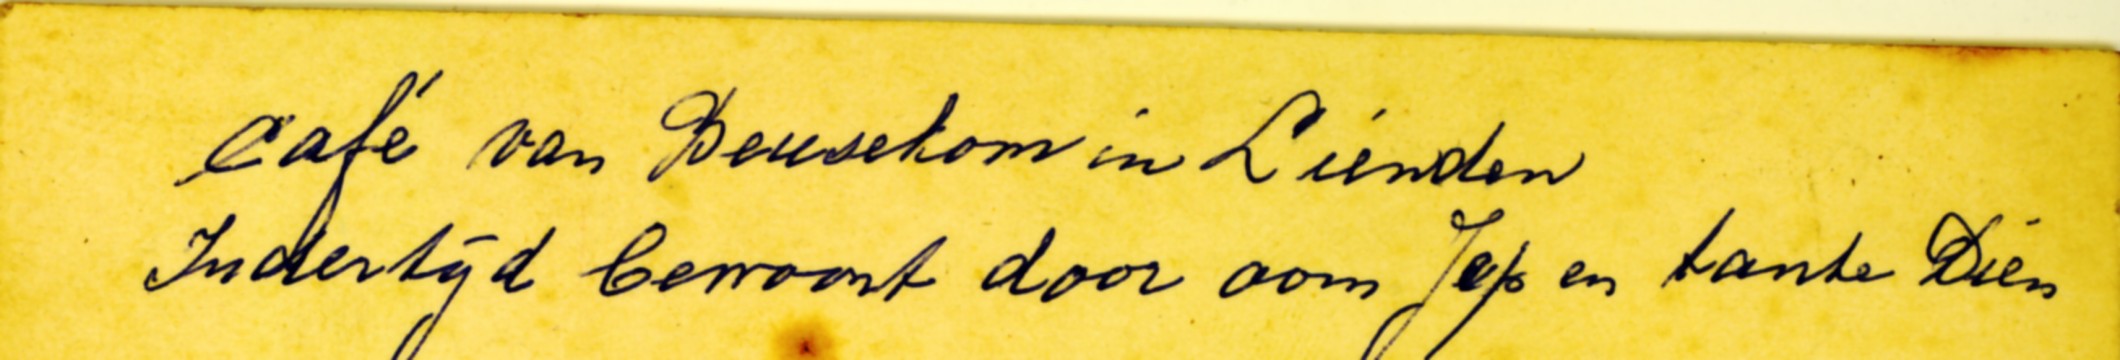 Café van Beusekom in Lienden
Indertijd bewoont door oom Jep en tante Dien